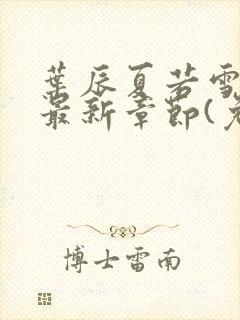 葉辰夏若雪
最新章節(免
博士雷南